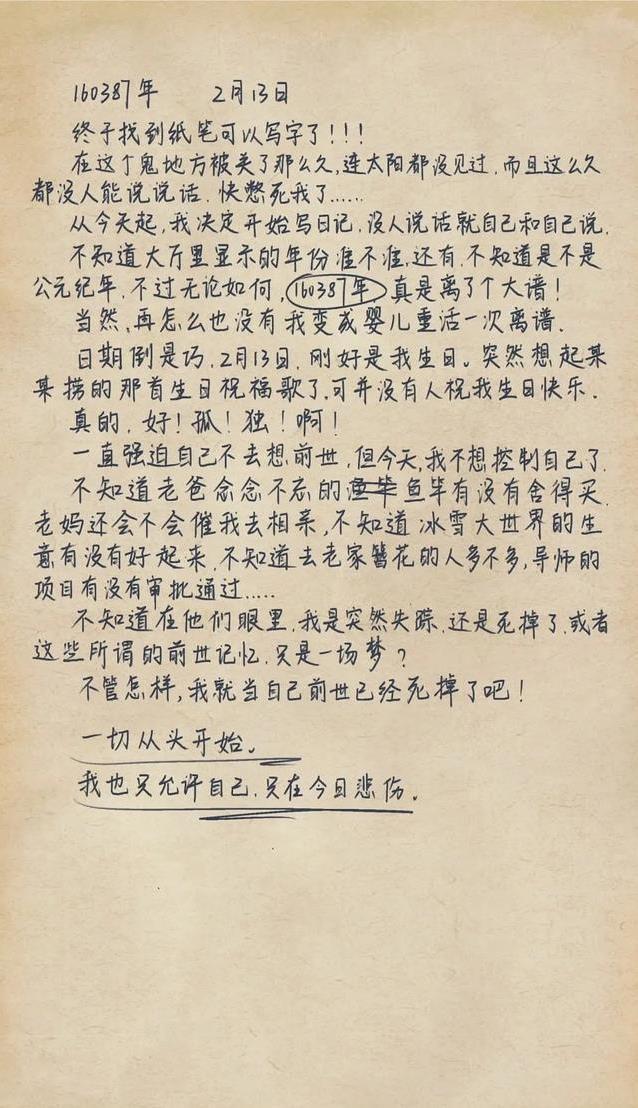 160387年 2月13日
终于找到纸笔可以写字了!!!
在这个鬼地方被关了那么久,连太阳都没见过,而且这么久
都没人能说说话,快憋死我了……
从今天起,我决定开始写日记,没人说话就自己和自己说.
不知道大厅里显示的年份准不准,还有,不知道是不是
公元纪年,不过无论如何,160387年真是离了个大谱!
当然,再怎么也没有我变成婴儿重活一次离谱.
日期倒是巧,2月13日,刚好是我生日。突然想起某
某捞的那首生日祝福歌了,可并没有人祝我生日快乐.
真的,好!孤!独!啊!
一直强迫自己不去想前世,但今天,我不想控制自己了.
不知道老爸念念不忘的鱼竿有没有舍得买.
老妈还会不会催我去相亲,不知道冰雪大世界的生
意有没有好起来,不知道去老家簪花的人多不多,导师的
项目有没有审批通过……
不知道在他们眼里,我是突然失踪,还是死掉了,或者
这些所谓的前世记忆,只是一场梦?
不管怎样,我就当自己前世已经死掉了吧!
一切从头开始。
我也只允许自己,只在今日悲伤。